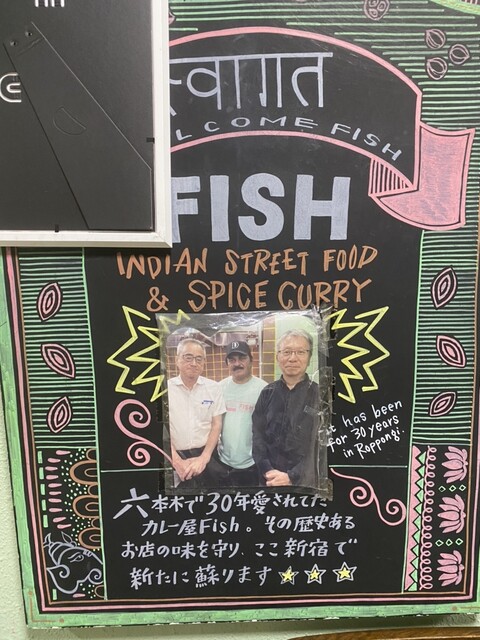 स्वागत
LCOME FISH
FISH
INDIAN STREET FOOD
& SPICE CURRY
it has been
for 30 years
in Roppongi.
六本木で30年愛されてた
カレー屋Fish。その歴史ある
お店の味を守り、ここ新宿で
新たに蘇ります